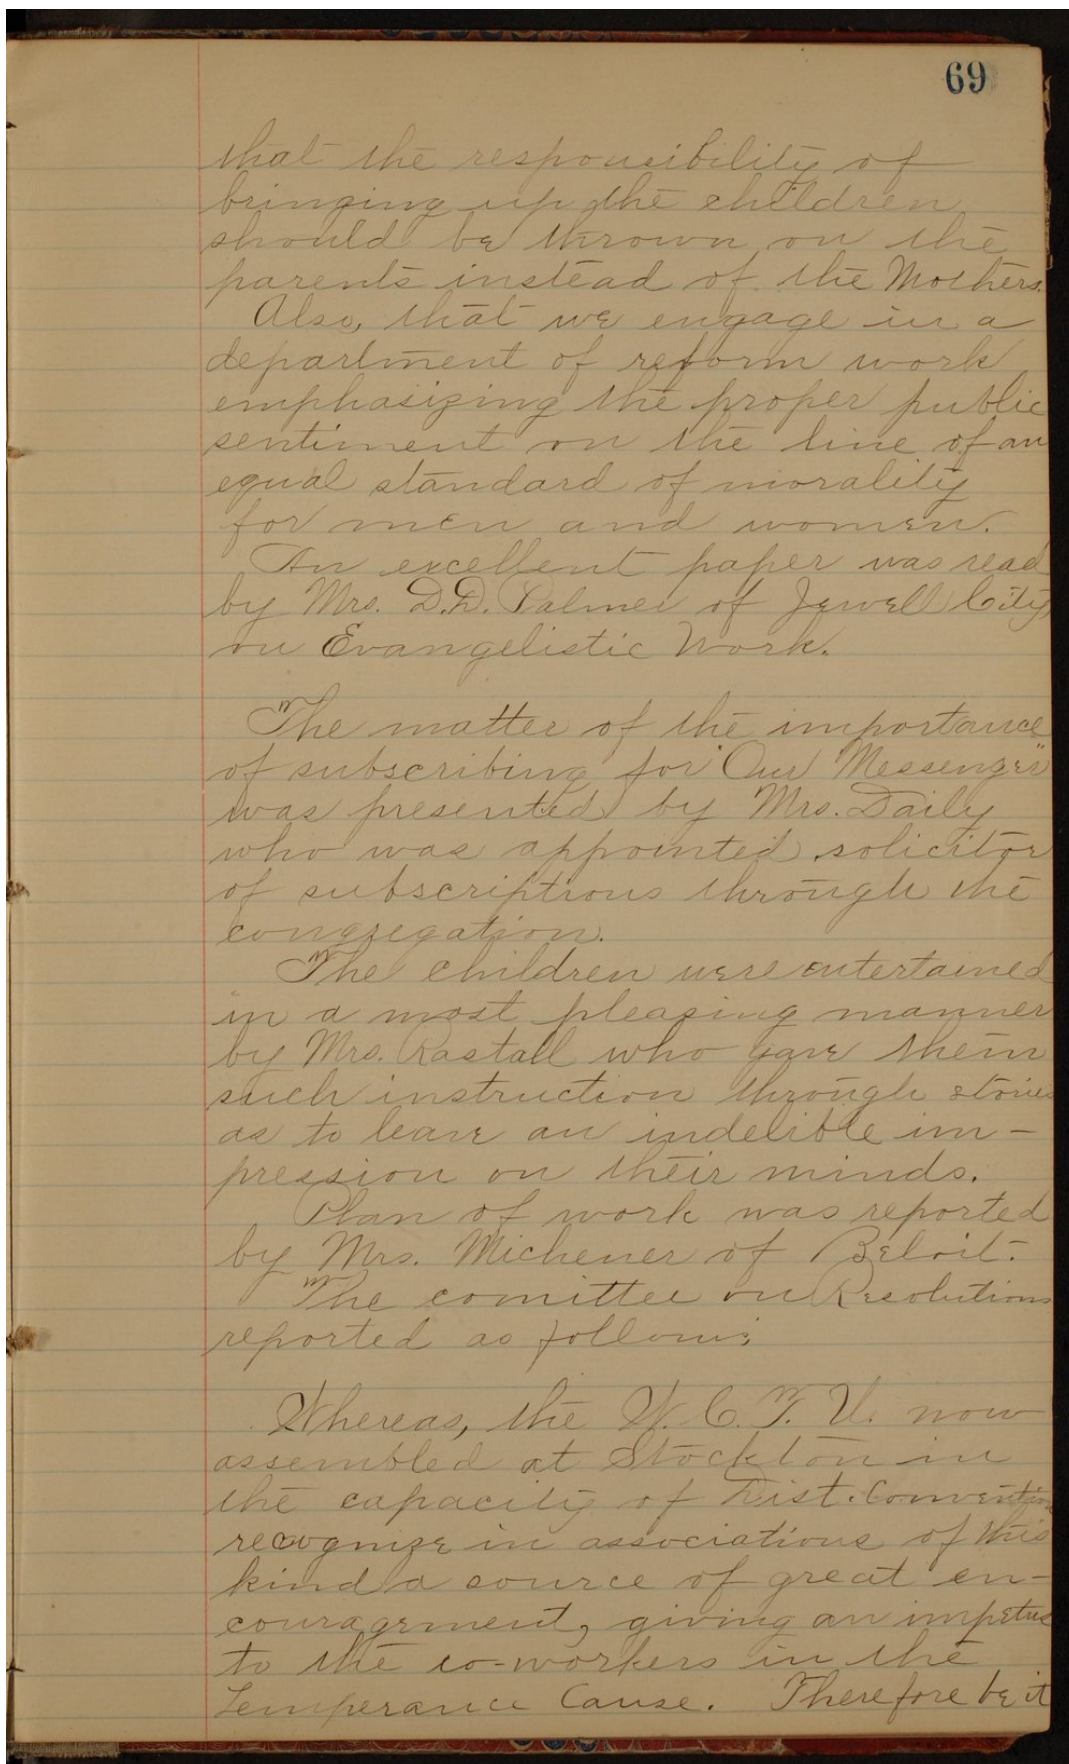 69
that the responsibility of
bringing up the children
should be thrown on the
parents instead of the Mothers.
Also, that we engage in a
department of reform work
emphasizing the proper public
sentiment on the line of an
equal standard of morality
for men and women.
An excellent paper was read
by Mrs. D.D. Palmer of Jewell City
on Evangelistic Work.
The matter of the importance
of subscribing for "Our Messenger"
was presented by Mrs. Daily
who was appointed solicitor
of subscriptions through the
congregation.
The children were entertained
in a most pleasing manner
by Mrs. Rastall who gave them
such instruction through stories
as to leave an indelible im-
pression on their minds.
Plan of work was reported
by Mrs. Michener of Beloit.
The comittee on Resolutions
reported as follows;
Whereas, the W. C. T. U. now
assembled at Stockton in
the capacity of Dist. Convention
recognize in associations of this
kind a source of great en-
couragement, giving an impetus
to the co-workers in the
Temperance Cause. Therefore be it